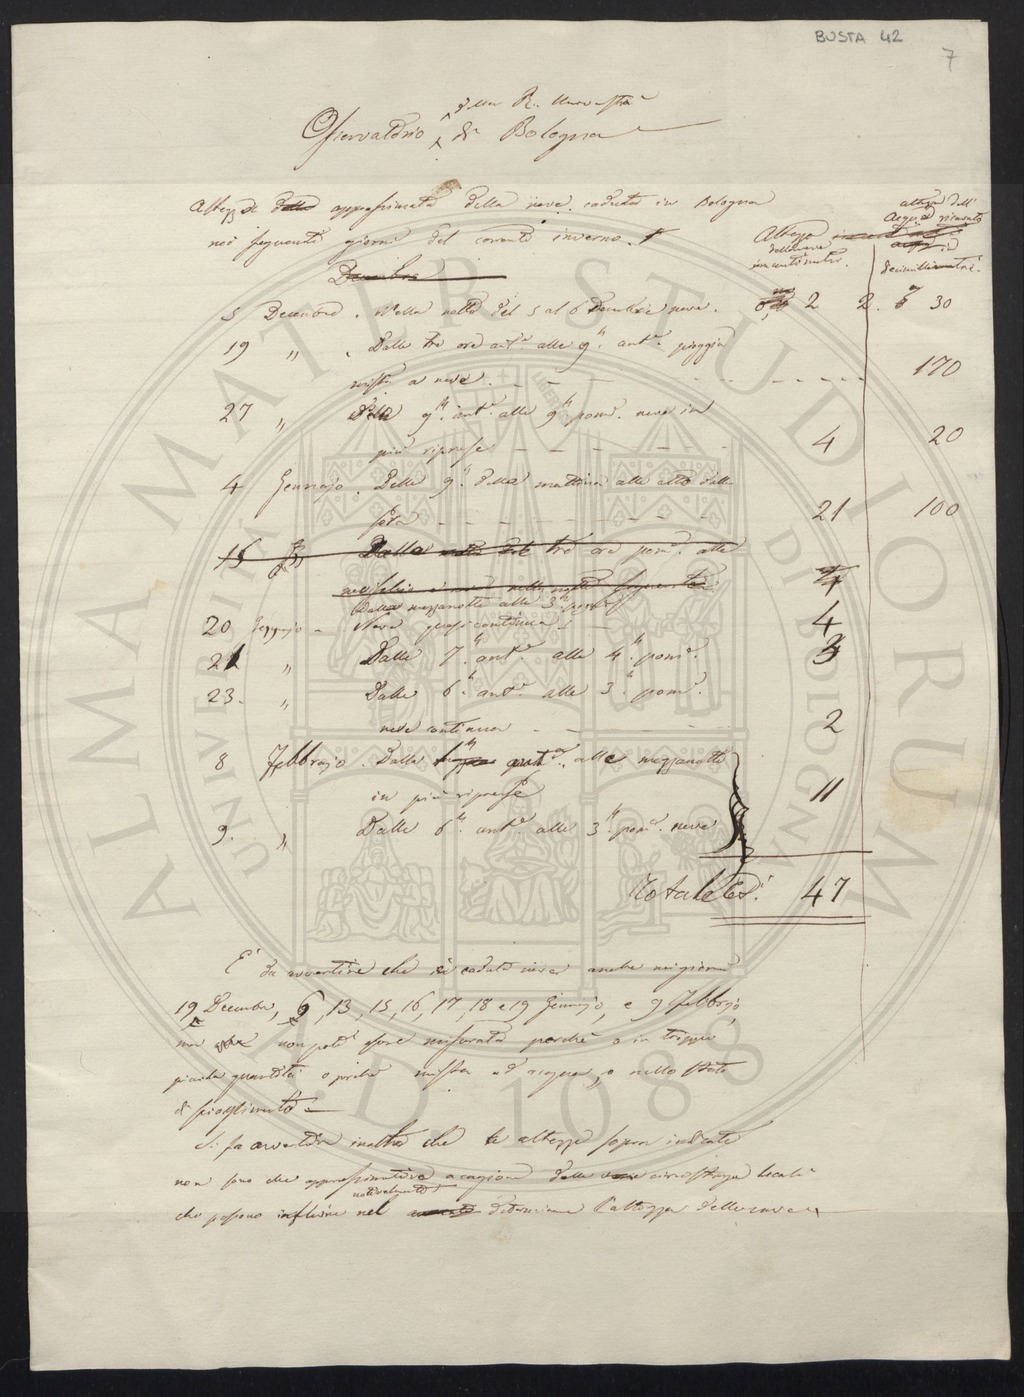 BUSTA 42
7
della R. Università
Osservatorio di Bologna
Altezze approssimata della neve caduta in Bologna
nei seguenti giorni del corrente inverno.
Altezza
della neve
in centimetri.
altezza dell'
Acqua
decimillimetri.
Decembre
5 Decembre. Nella notte del 5 al 6 Decembre neve. 2 2. 30
19 " . Dalle tre ore ant.e alle 9.h ant.e pioggia
mista a neve. 170
27 " Dalle 9.h ant.e alle 9.h pom.e neve in
più riprese 4 20
4 Gennajo. Dalle 9.h della mattina alle otto della
sera 21 100
15 Dalle tre ore pom.e alle
nella notte seguente 4
Dalla mezzanotte alle 3.h pom.e
20 Gennajo - Neve quasi continua 4
21 " Dalle 7.h ant.e alle 4.h pom.e 3
23. " Dalle 6.h ant.e alle 3.h pom.e
neve continua 2
8 Febbrajo. Dalle ant.e alle mezzanotte
in più riprese 11
9. " Dalle 6.h ant.e alle 3.h pom.e neve
Totale 47
E' da avvertire che è caduta neve anche nei giorni
19 Decembre, 6, 13, 15, 16, 17, 18 e 19 Gennajo, e 9 Febbrajo,
ma non potè essere misurata perchè o in troppo
piccola quantità o perchè mista ad acqua, o nello stato
di scioglimento
Si fa avvertire inoltre che le altezze sopra indicate
non sono che approssimative a cagione delle circostanze locali
notevolmente
che possono influire nel determinare l'altezza della neve
ALMA MATER STUDIORUM
UNIVERSITÀ DI BOLOGNA
A.D. 1088